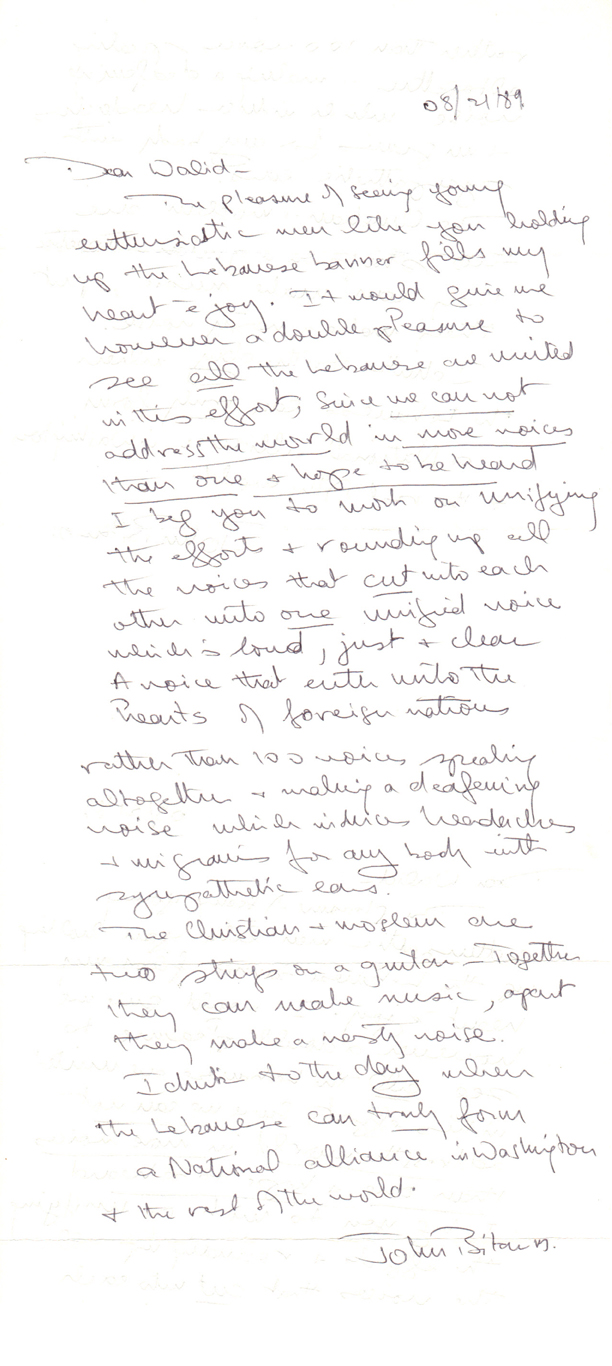 08/21/89
Dear Walid -
The pleasure of seeing young
enthusiastic men like you holding
up the Lebanese banner fills my
heart c̄ joy. It would give me
however a double pleasure to
see all the Lebanese are united
in this effort; since we can not
address the world in more voices
than one + hope to be heard
I beg you to work on unifying
the efforts + rounding up all
the voices that cut into each
other into one unified voice
which is loud, just + clear
A voice that enter into the
hearts of foreign nations
rather than 100 voices speaking
altogether + making a deafening
noise which induces headaches
+ migrains for any body with
sympathetic ears.
The Christian + moslem are
two strings on a guitar - Together
they can make music, apart
they make a nasty noise.
I drink to the day when
the Lebanese can truly form
a National alliance in Washington
+ the rest of the world.
John